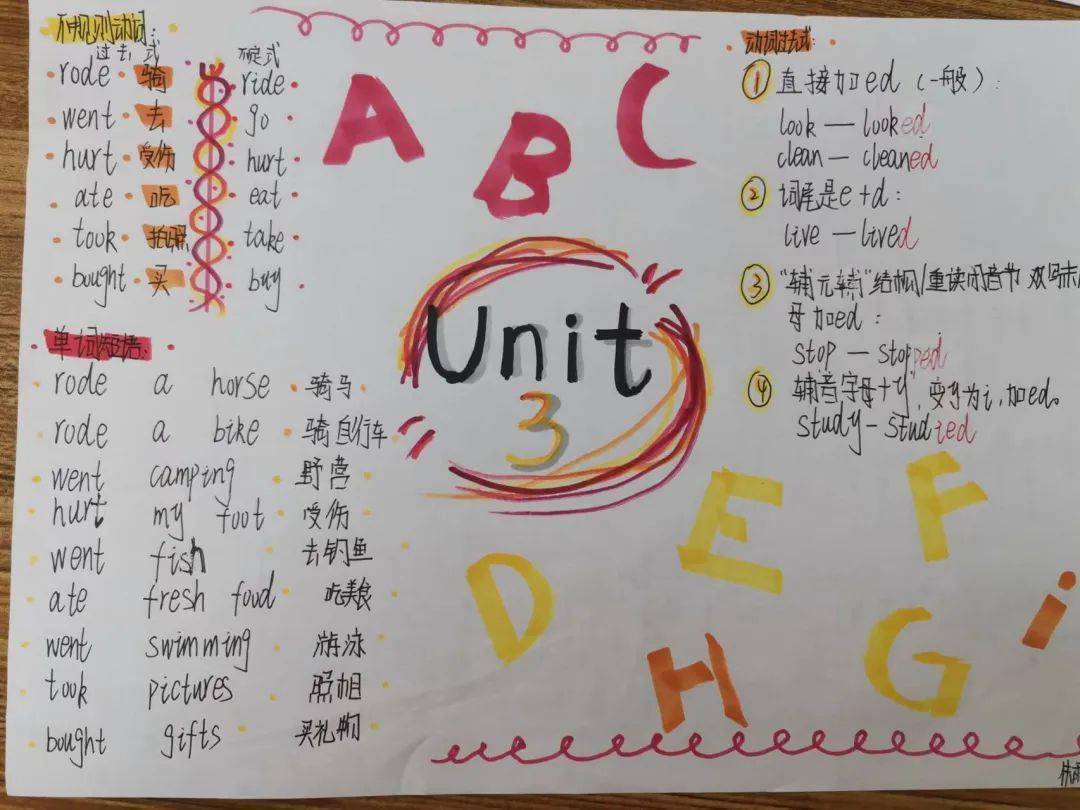 不规则动词:
过去式 不定式
rode 骑 ride
went 去 go
hurt 受伤 hurt
ate 吃 eat
took 拍照 take
bought 买 buy
单词短语:
rode a horse 骑马
rode a bike 骑自行车
went camping 野营
hurt my foot 受伤
went fish 去钓鱼
ate fresh food 吃美粮
went swimming 游泳
took pictures 照相
bought gifts 买礼物
A B C
Unit
3
动词过去式:
① 直接加ed(一般):
look — looked
clean — cleaned
② 词尾是e+d:
live — lived
③ "辅元辅"结构/重读闭音节 双写末
母加ed:
stop — stopped
④ 辅音字母+y", 变y为i,加ed。
study - studied
D E F
H G i